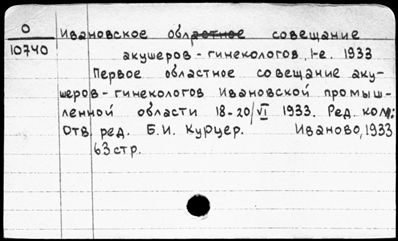 О
10740
Ивановское областное совещание
акушеров-гинекологов, 1-е. 1933
Первое областное совещание аку-
шеров-гинекологов Ивановской промыш-
ленной области 18-20/VI 1933. Ред. кол.:
Отв. ред. Б.И. Курцер. Иваново, 1933
63 стр.